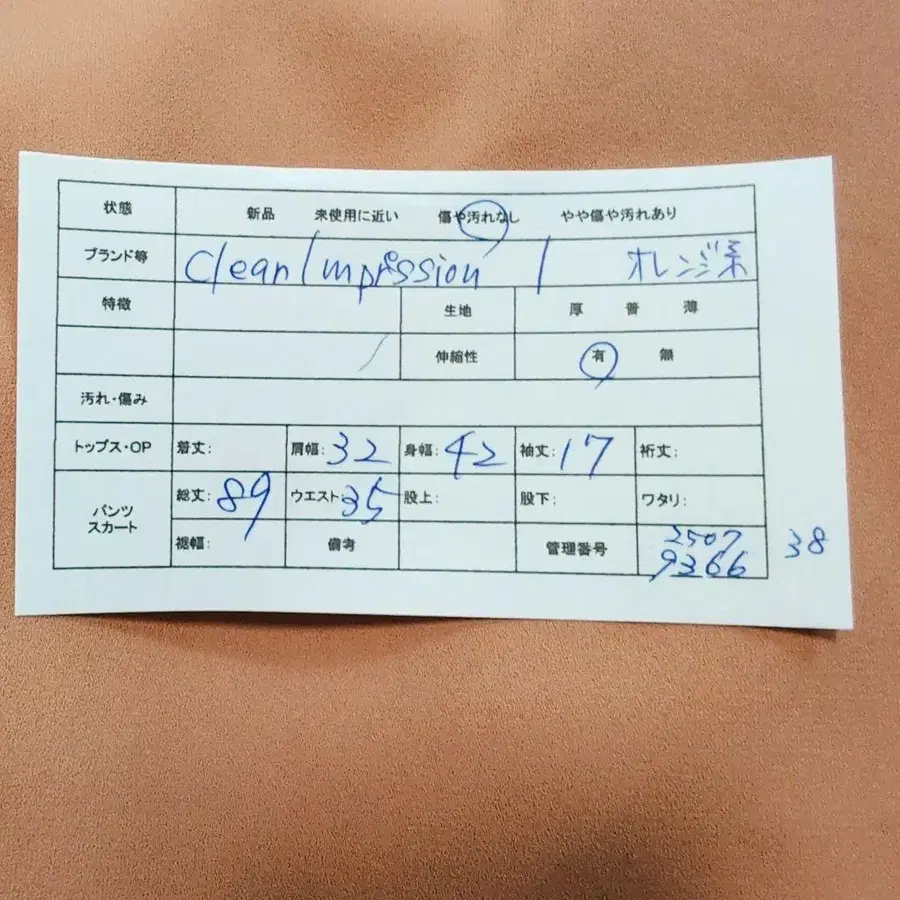 状態 新品 未使用に近い 傷や汚れなし やや傷や汚れあり
ブランド等 Clean Impression / オレンジ系
特徴 生地 厚 普 薄
伸縮性 有 無
汚れ・傷み
トップス・OP 着丈: 肩幅:32 身幅:42 袖丈:17 裄丈:
パンツ スカート 総丈:89 ウエスト:35 股上: 股下: ワタリ:
裾幅: 備考 管理番号 2507
9366 38